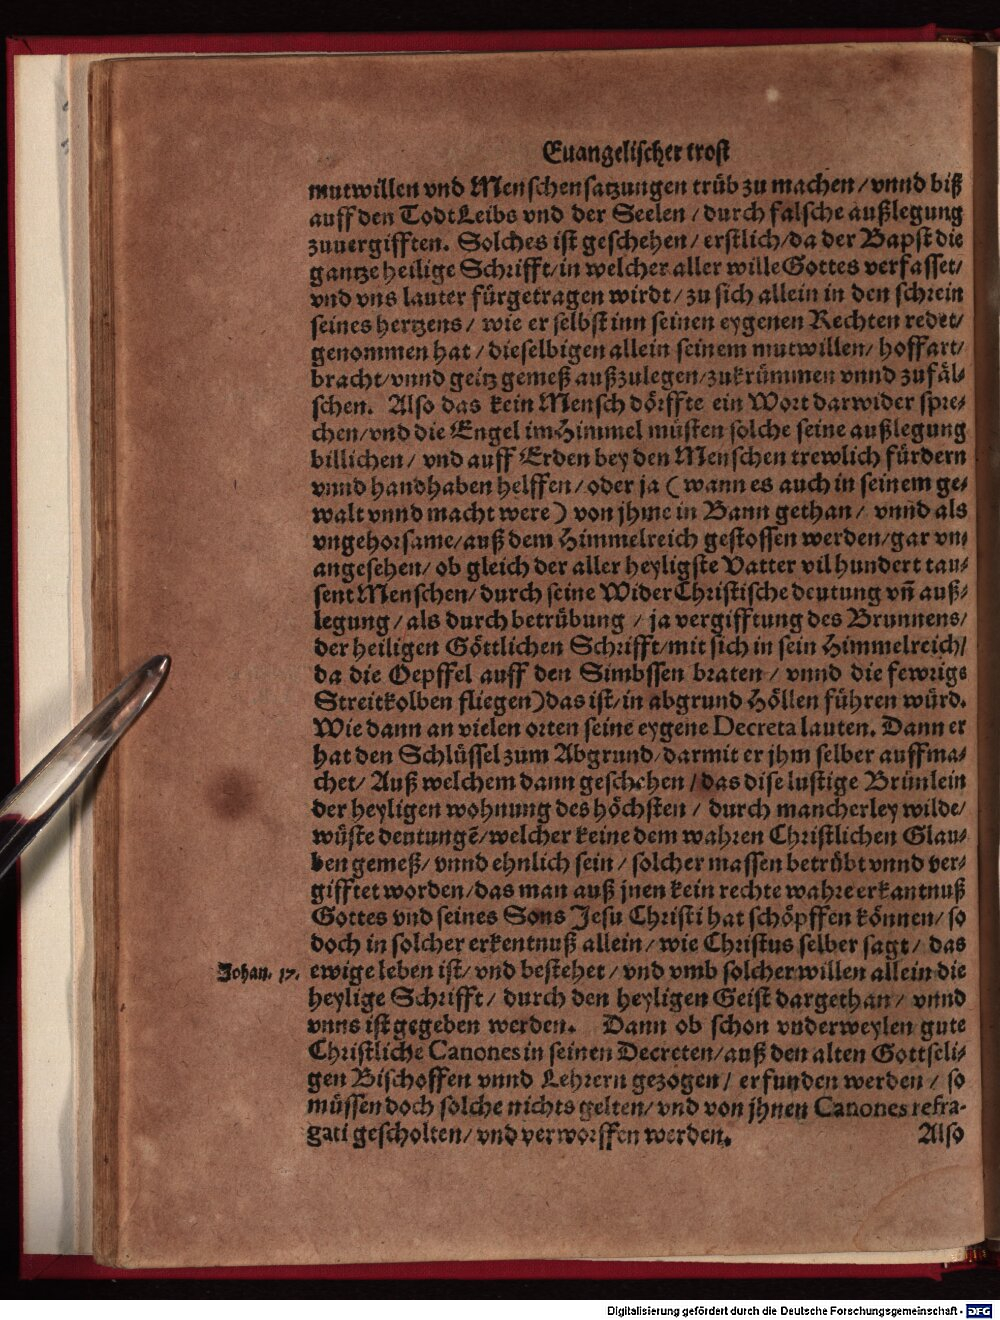 Euangelischer trost
mutwillen vnd Menschensatzungen trüb zu machen/ vnnd biß
auff den Todt Leibs vnd der Seelen/ durch falsche außlegung
zuuergifften. Solches ist geschehen/ erstlich/ da der Bapst die
gantze heilige Schrifft/ in welcher aller wille Gottes verfasset/
vnd vns lauter fürgetragen wirdt/ zu sich allein in den schrein
seines hertzens/ wie er selbst inn seinen eygenen Rechten redet/
genommen hat/ dieselbigen allein seinem mutwillen/ hoffart/
bracht/ vnnd geitz gemeß außzulegen/ zukrümmen vnnd zufäl-
schen. Also das kein Mensch dörffte ein Wort darwider spre-
chen/ vnd die Engel im Himmel müsten solche seine außlegung
billichen/ vnd auff Erden bey den Menschen trewlich fürdern
vnnd handhaben helffen/ oder ja ( wann es auch in seinem ge-
walt vnnd macht were ) von jhme in Bann gethan/ vnnd als
vngehorsame/ auß dem Himmelreich gestossen werden/ gar vn-
angesehen/ ob gleich der aller heyligste Vatter vil hundert tau-
sent Menschen/ durch seine WiderChristische deutung vñ auß-
legung/ als durch betrübung/ ja vergifftung des Brunnens/
der heiligen Göttlichen Schrifft/ mit sich in sein Himmelreich/
da die Oepffel auff den Simbssen braten/ vnnd die fewrige
Streitkolben fliegen) das ist/ in abgrund Höllen führen würd.
Wie dann an vielen orten seine eygene Decreta lauten. Dann er
hat den Schlüssel zum Abgrund/ darmit er jhm selber auffma-
chet/ Auß welchem dann geschehen/ das dise lustige Brünlein
der heyligen wohnung des höchsten/ durch mancherley wilde/
wüste deutungẽ/ welcher keine dem wahren Christlichen Glau-
ben gemeß/ vnnd ehnlich sein/ solcher massen betrübt vnnd ver-
gifftet worden/ das man auß jnen kein rechte wahre erkantnuß
Gottes vnd seines Sons Jesu Christi hat schöpffen können/ so
doch in solcher erkentnuß allein/ wie Christus selber sagt/ das
Johan. 17. ewige leben ist/ vnd bestehet/ vnd vmb solcher willen allein die
heylige Schrifft/ durch den heyligen Geist dargethan/ vnnd
vnns ist gegeben werden. Dann ob schon vnderweylen gute
Christliche Canones in seinen Decreten/ auß den alten Gottseli-
gen Bischoffen vnnd Lehrern gezogen/ erfunden werden/ so
müssen doch solche nichts gelten/ vnd von jhnen Canones refra-
gati gescholten/ vnd verworffen werden.
Also
Digitalisierung gefördert durch die Deutsche Forschungsgemeinschaft - DFG